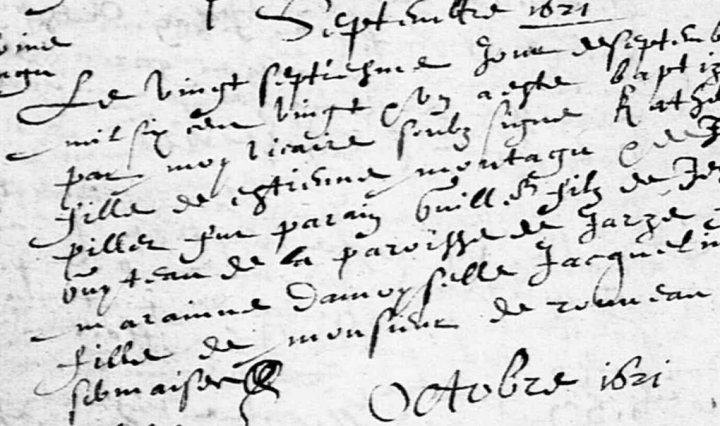 Septembre 1621
Le vingt septiesme jour de septemb
mil six cen vingt & un a este baptiz
par moy vicaire soubz signe Kathe
fille de estienne montagu & de J
pillet fut parain Guill filz de Je
Guyteau de la paroisse de Jarze
marainne damoyselle Jacquelin
fille de monsieur de rouveau
Octobre 1621